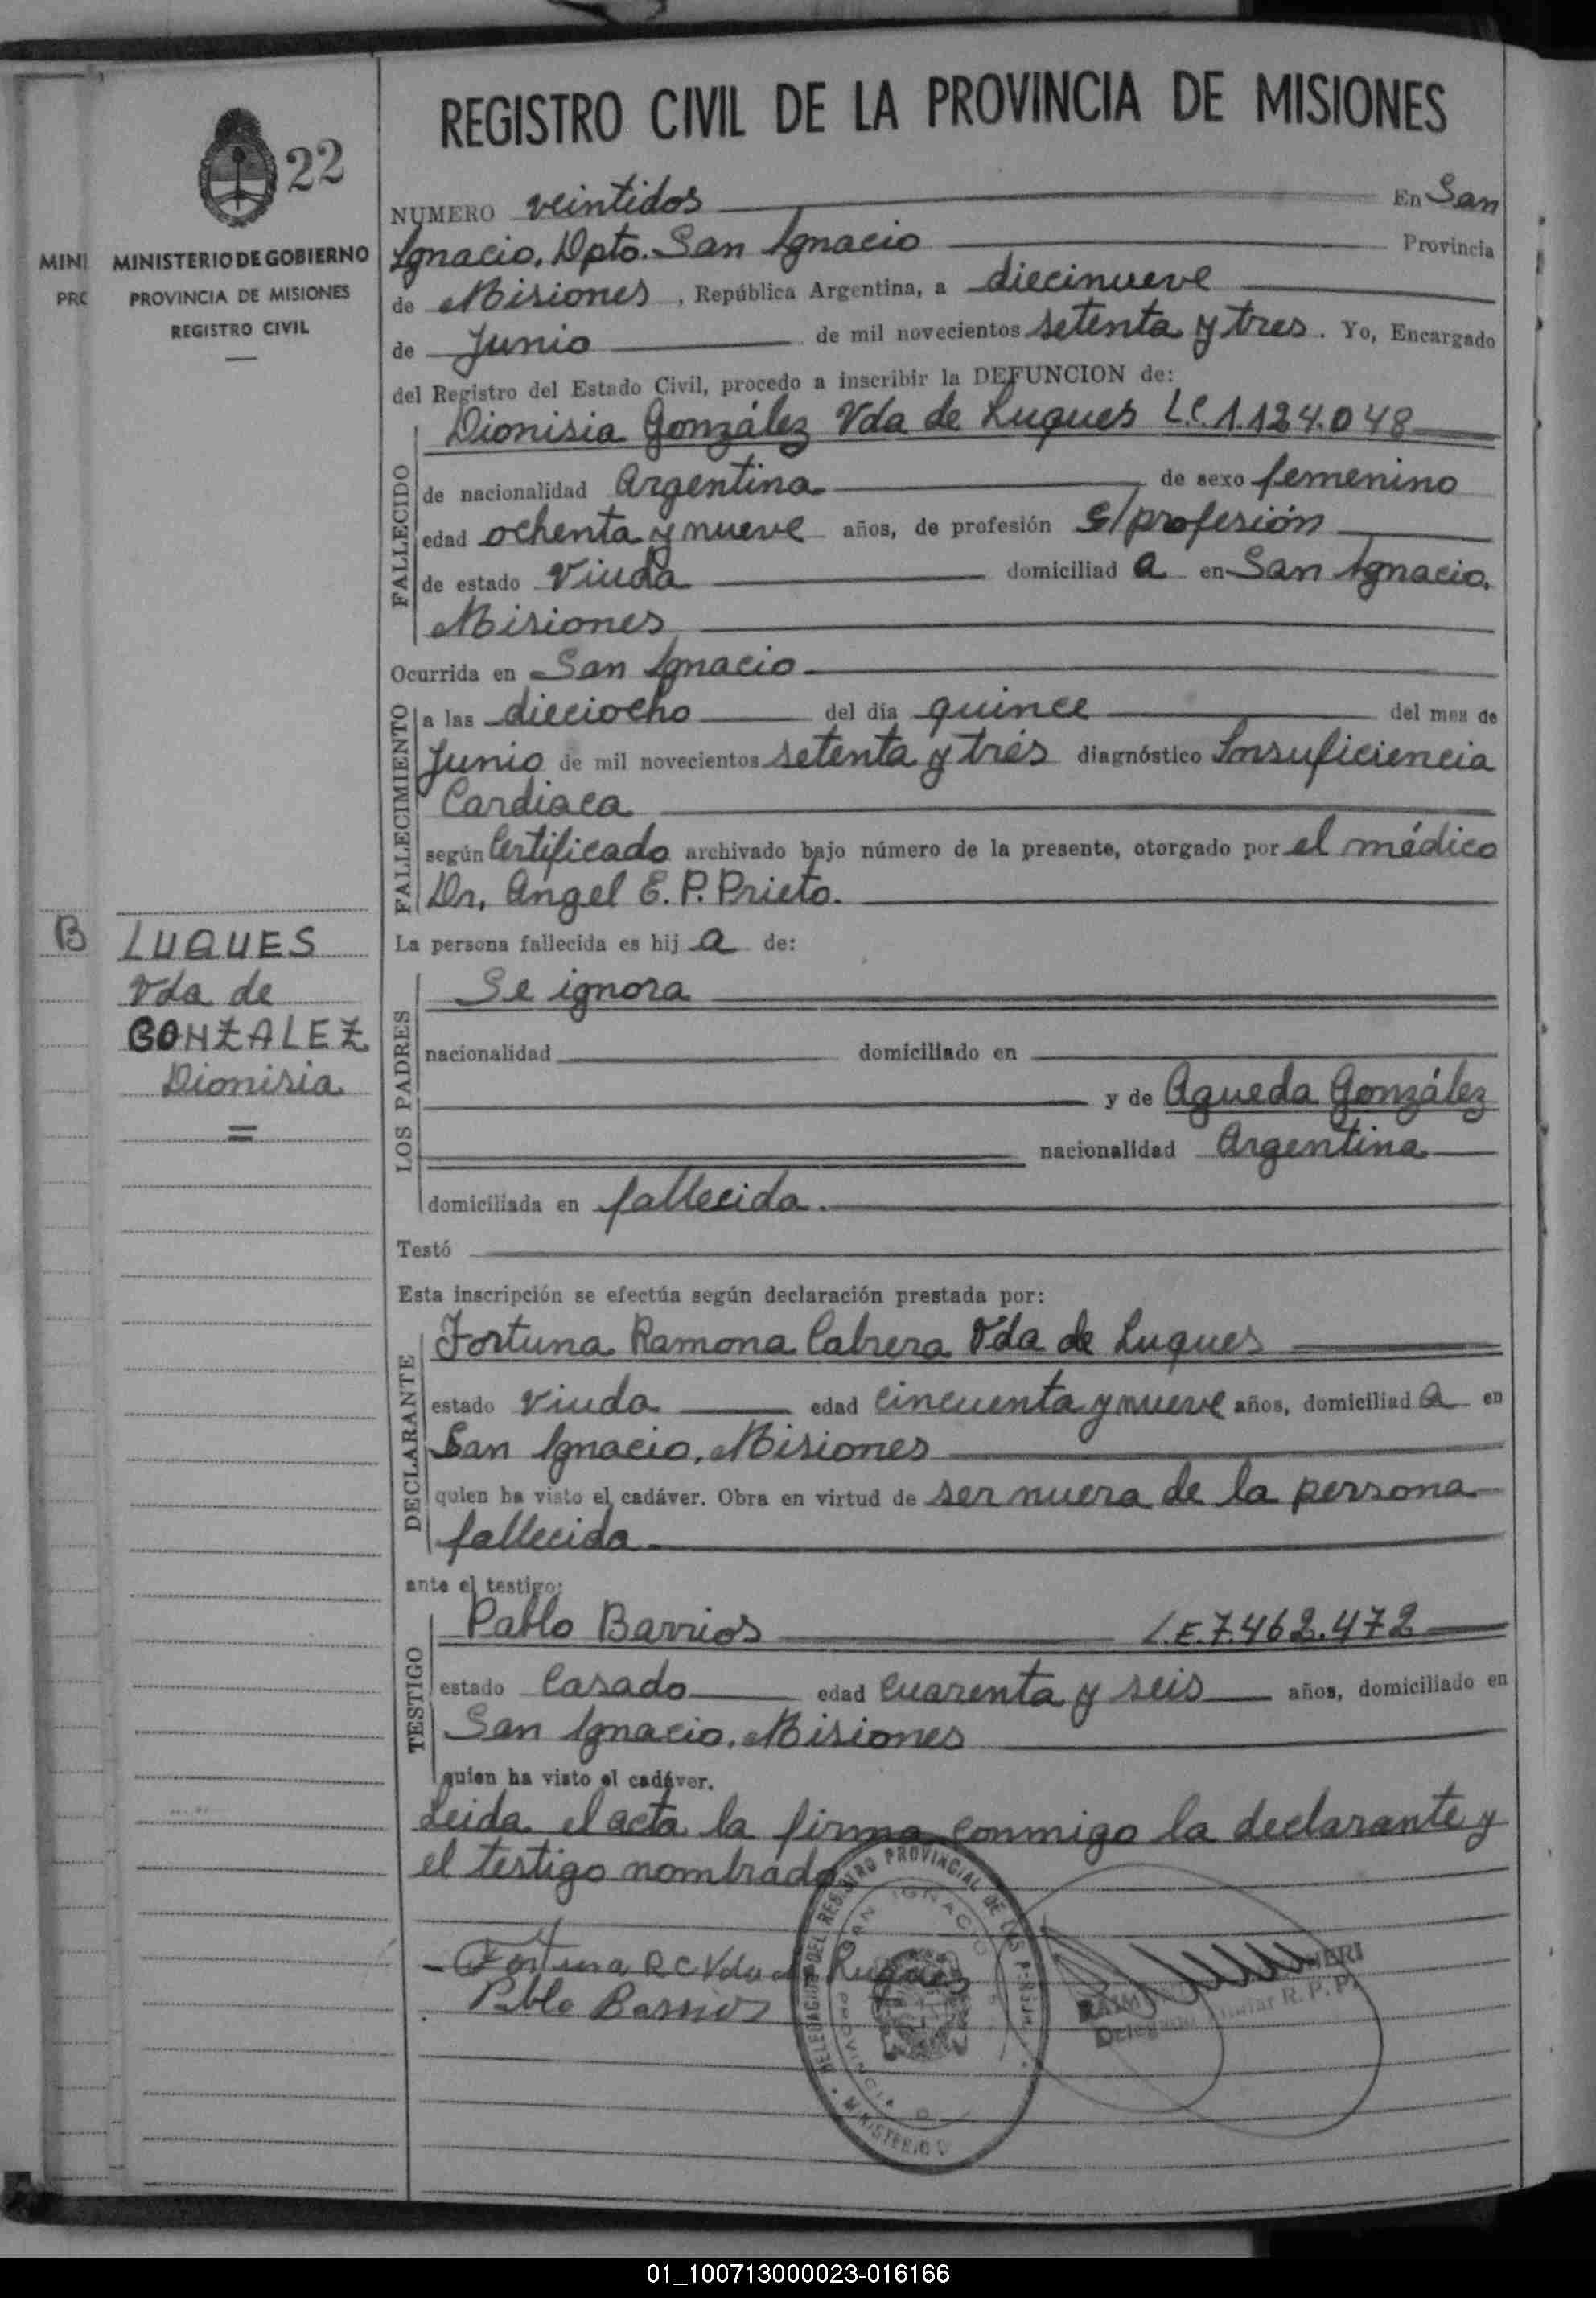 REGISTRO CIVIL DE LA PROVINCIA DE MISIONES
22
MINI
PRC
MINISTERIO DE GOBIERNO
PROVINCIA DE MISIONES
REGISTRO CIVIL
NUMERO veintidos En San
Ignacio, Dpto. San Ignacio Provincia
de Misiones, República Argentina, a diecinueve
de Junio de mil novecientos setenta y tres. Yo, Encargado
del Registro del Estado Civil, procedo a inscribir la DEFUNCION de:
FALLECIDO
Dionisia González Vda de Luques L.C. 1.124.048
de nacionalidad Argentina de sexo femenino
edad ochenta y nueve años, de profesión s/profesión
de estado Viuda domiciliad a en San Ignacio,
Misiones
Ocurrida en San Ignacio
FALLECIMIENTO
a las dieciocho del día quince del mes de
Junio de mil novecientos setenta y trés diagnóstico Insuficiencia
Cardiaca
según Certificado archivado bajo número de la presente, otorgado por el médico
Dr. Angel E. P. Prieto.
B
LUQUES
Vda de
GONZALEZ
Dionisia
=
La persona fallecida es hij a de:
LOS PADRES
Se ignora
nacionalidad domiciliado en
y de Agueda González
nacionalidad Argentina
domiciliada en fallecida.
Testó
Esta inscripción se efectúa según declaración prestada por:
DECLARANTE
Fortuna Ramona Cabrera Vda de Luques
estado Viuda edad cincuenta y nueve años, domiciliad a en
San Ignacio, Misiones
quien ha visto el cadáver. Obra en virtud de ser nuera de la persona
fallecida
ante el testigo:
TESTIGO
Pablo Barrios L.E. 7.462.472
estado Casado edad cuarenta y seis años, domiciliado en
San Ignacio, Misiones
quien ha visto el cadáver.
Leida el acta la firma conmigo la declarante y
el testigo nombrado.
DELEGACION DEL REGISTRO PROVINCIAL DE LAS PERS
SAN IGNACIO
PROVINCIA D
MINISTERIO
Fortuna R C Vda de Luques
Pablo Barrios
RAIM NERI
Delegado Titular R. P. P.
01_100713000023-016166